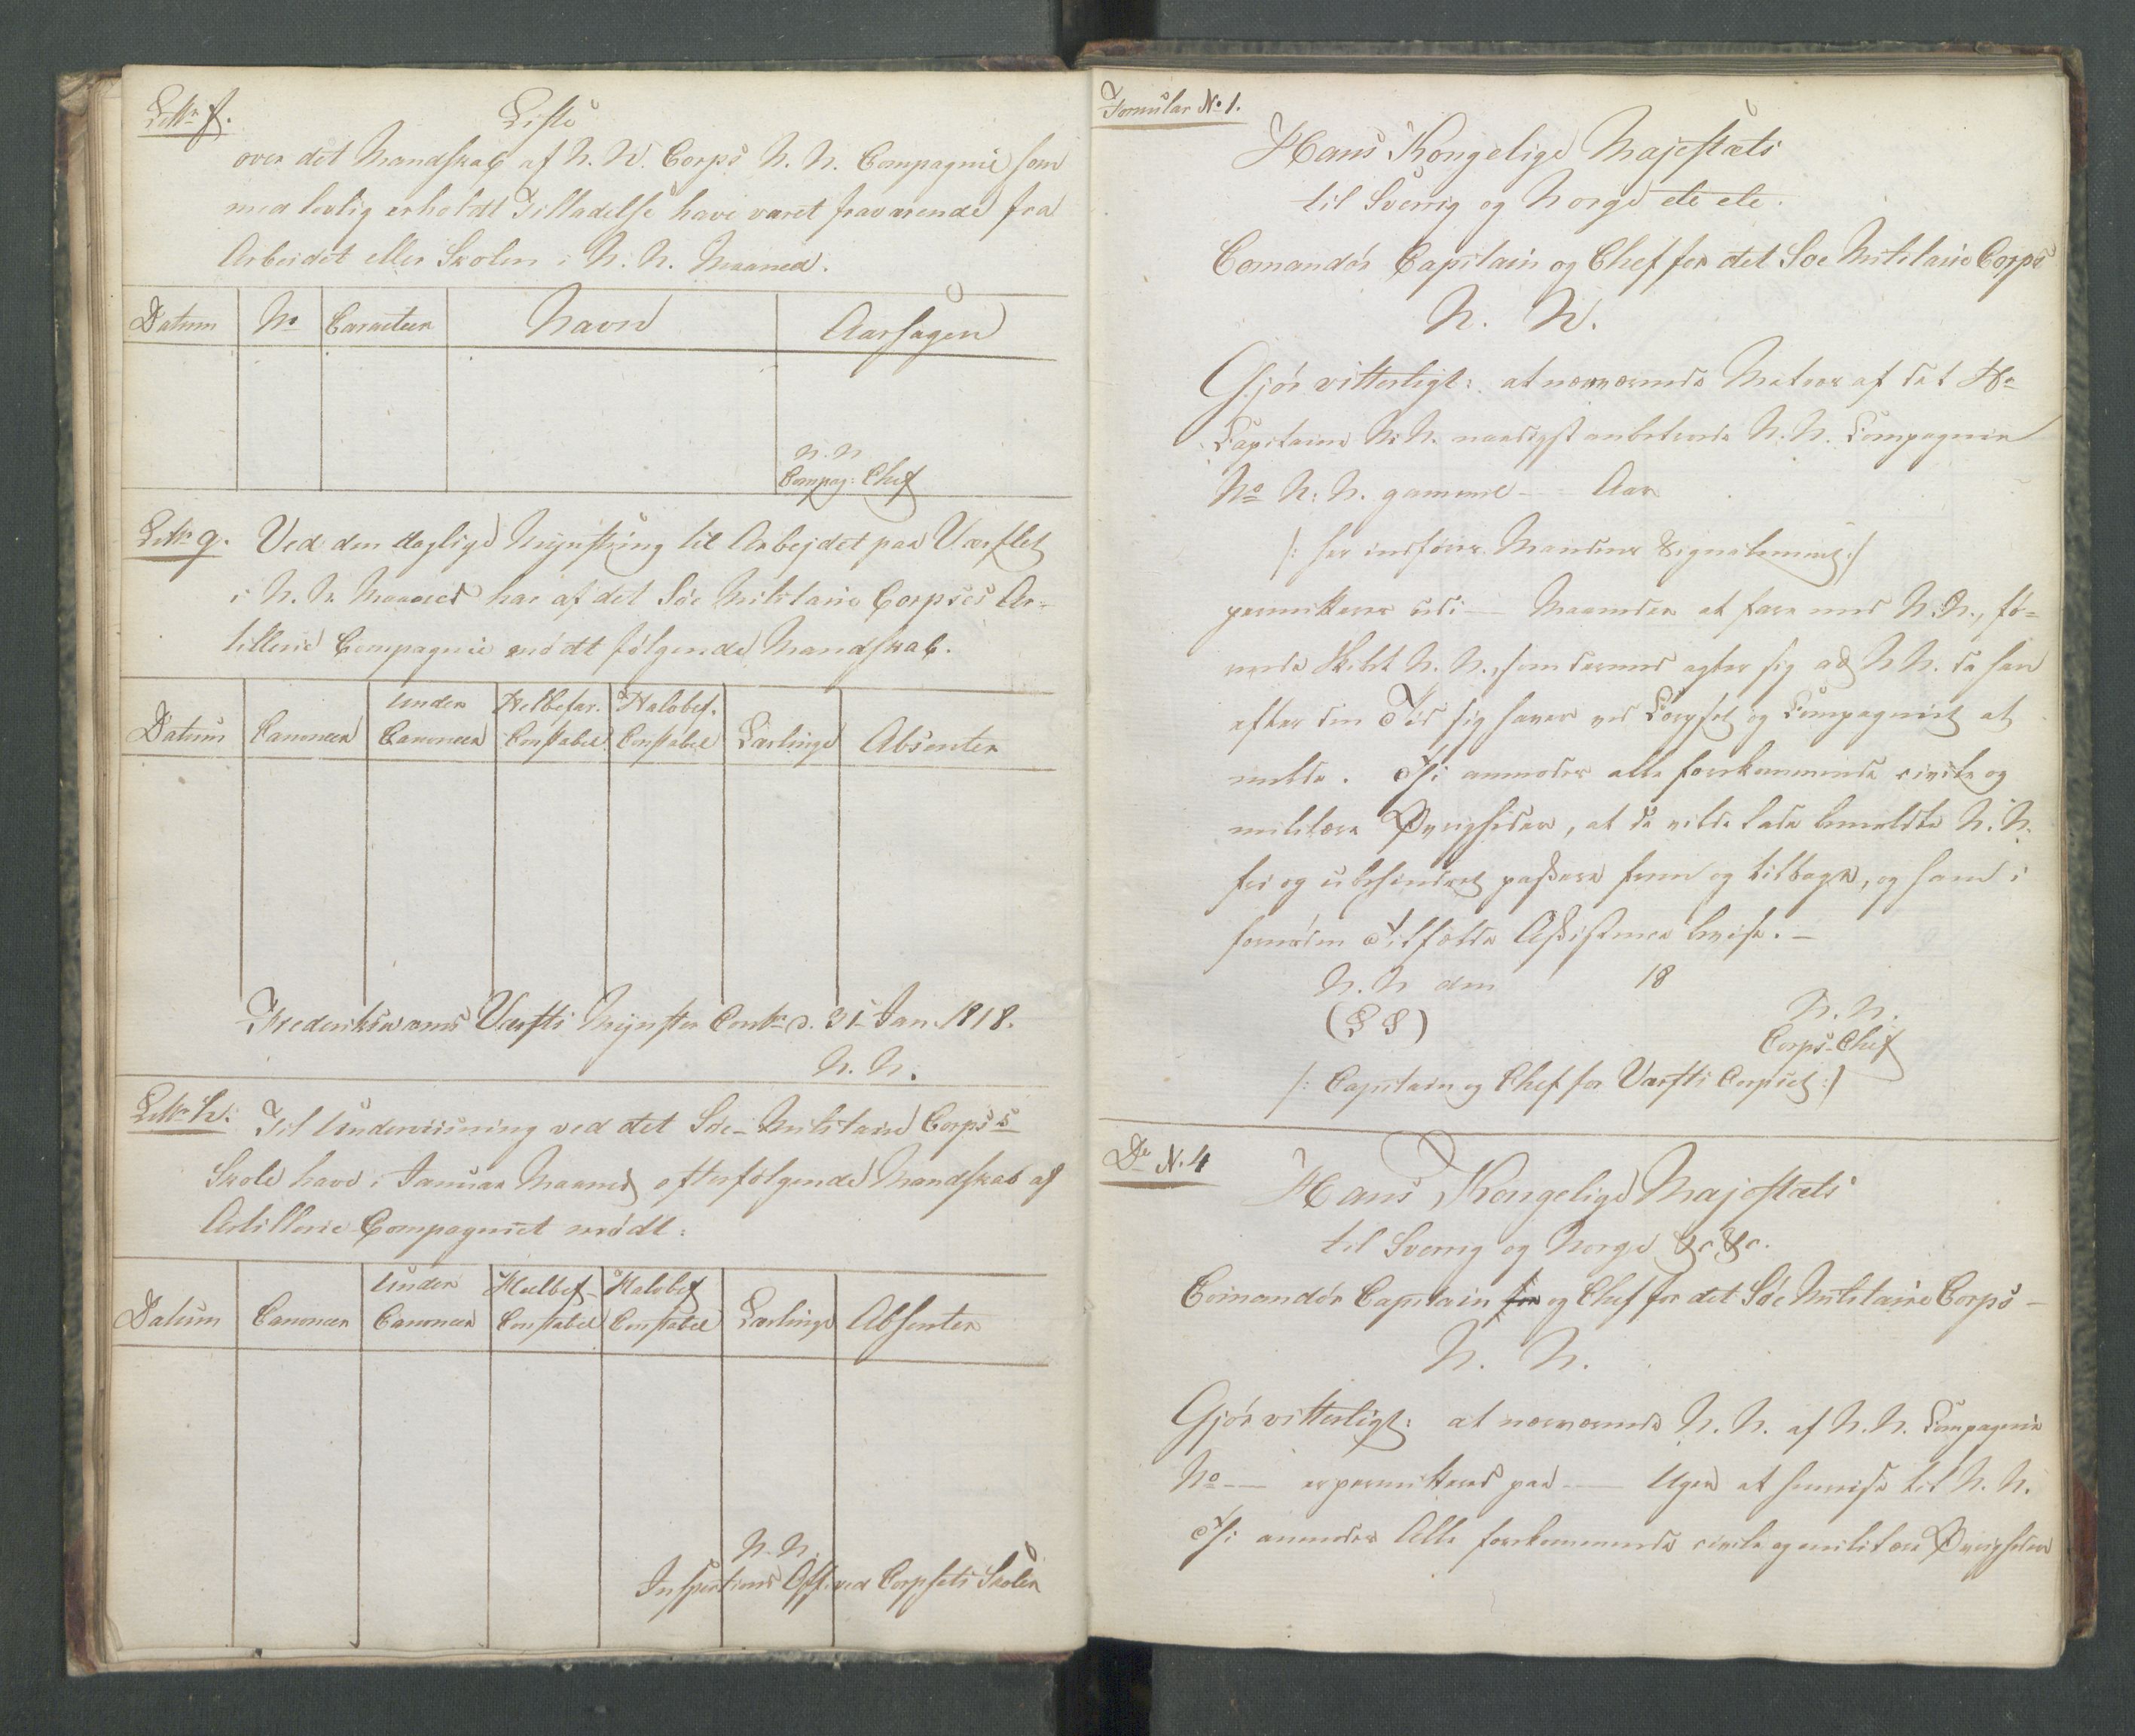 Littr f.
Liste
over det Mandskab af N. N. Corps N. N. Compagnie som
med lovlig erholdt Tilladelse have været fraværende fra
Arbeidet eller Skolen i N. N. Maaned.
Datum No Caracteer Navn Aarsagen
N. N
Compag: Chef
Littr g. Ved den daglige Mynstring til Arbejdet paa Værftet
i N. N. Maaned har af det Søe Militaire Corpses Ar-
tillerie Compagnie mødt følgende Mandskab.
Datum Canoneer Under Canoneer Helbefar. Constabel Halvbef. Constabel Lærlinge Absenter
Frederiksværns Værfts Mynster Contr d. 31 Jan. 1818.
N. N.
Littr h. Til Underviisning ved det Søe-Militaire Corps's
Skole have i Januar Maaned efterfølgende Mandskab af
Artillerie Compagniet mødt:
Datum Canoneer Under Canoneer Heelbef- Constabel Halvbef Constabel Lærlinge Absenter
N. N.
Inspections Off. ved Corpsets Skole
Formular No 1.
Hans Kongelige Majestæts
til Sverrig og Norge etc etc.
Comandør Capitain og Chef for det Søe Militaire Corps
N. N.
Gjør vitterligt: at nærværende Matros af det Hr
Capitaine N. N. naadigst anbetroede N. N. Compagnie
No N. N. gammel -- Aar
/: her indføres Mandens Signalement :/
permitteres udi -- Maaneder at fare med N. N., fø-
rende Skibet N. N., som dermed agter sig ad N N. da han
efter den Tid sig haver ved Corpset og Compagniet at
melde. Thi anmodes alle forekommende civile og
militære Øvrigheder, at de vilde lade bemeldte N. N.
fri og ubehindret passere frem og tilbage, og ham i
fornøden Tilfælde Assistence bevise. -
N. N den 18
(L S)
N. N.
Corps-Chef
/: Capitain og Chef for Værfts Corpset :/
Do N. 4
Hans Kongelige Majestæts
til Sverrig og Norge &c &c.
Comandør Capitain for og Chef for det Søe Militaire Corps -
N. N.
Gjør vitterligt: at nærværende N. N. af N. N. Compagnie
No -- er permitteret paa -- Uger at henreise til N. N.
Thi anmodes Alle forekommende civile og militære Øvrigheder